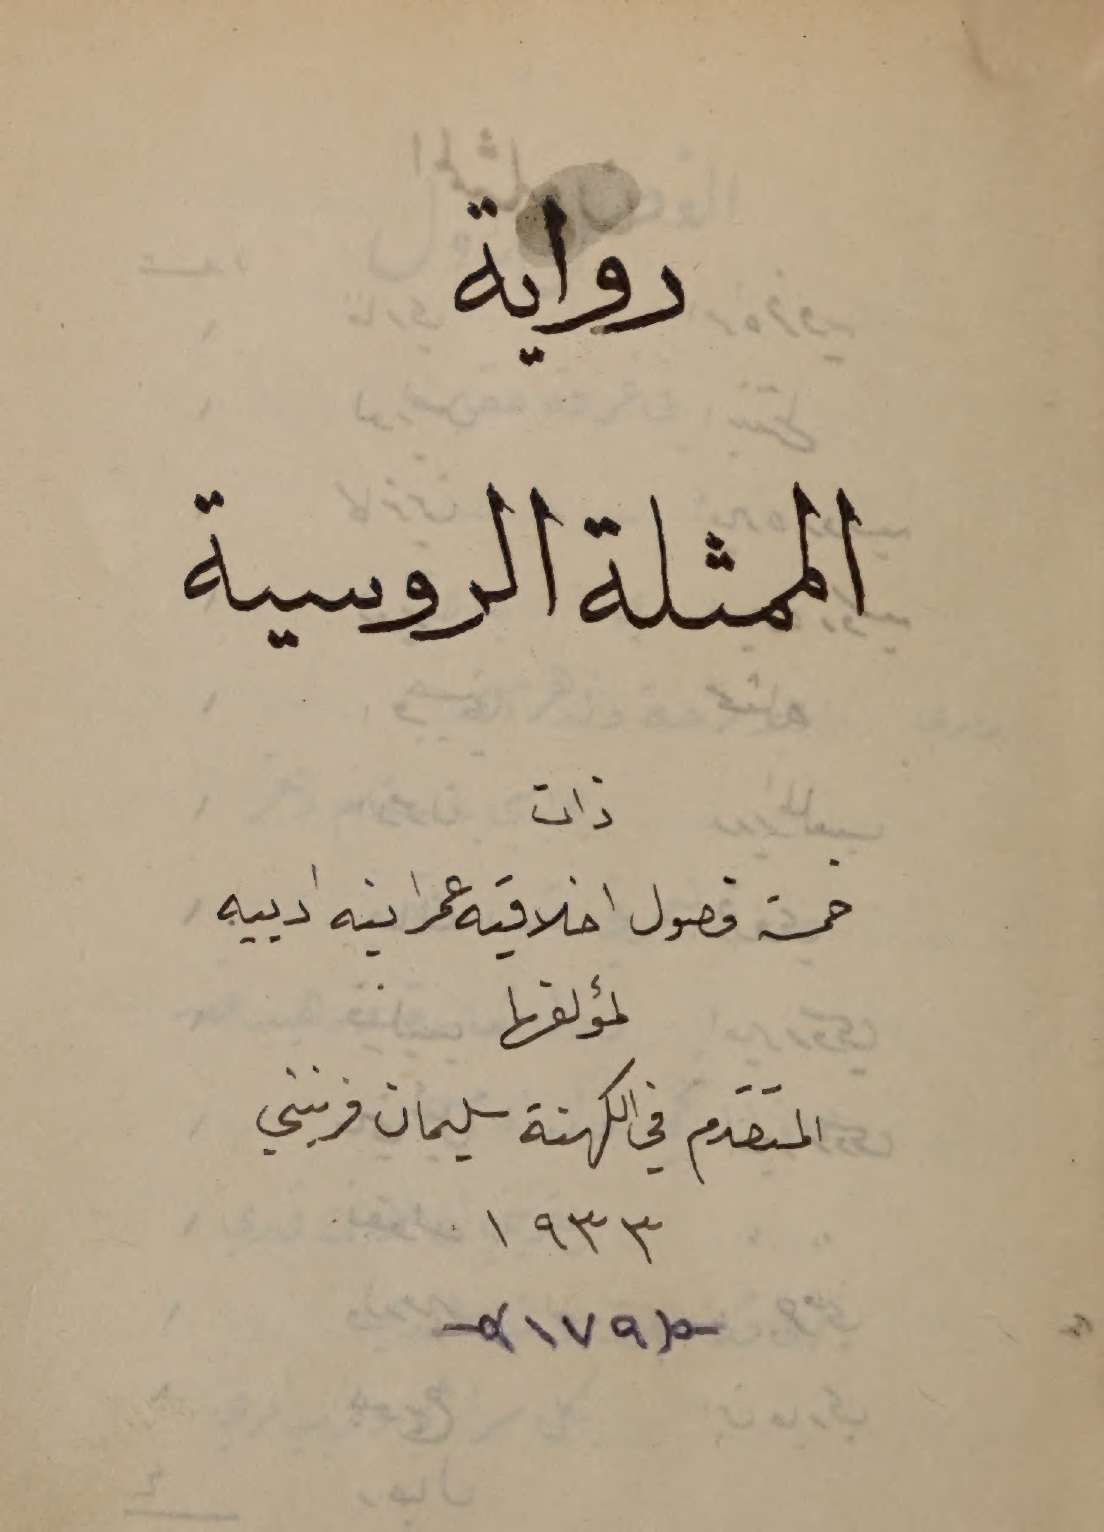 رواية
الممثلة الروسية
ذات
خمسة فصول اخلاقيه عمرانيه ادبيه
لمؤلفها
المتقدم في الكهنة سليمان فرنيني
١٩٣٣
١٧٩